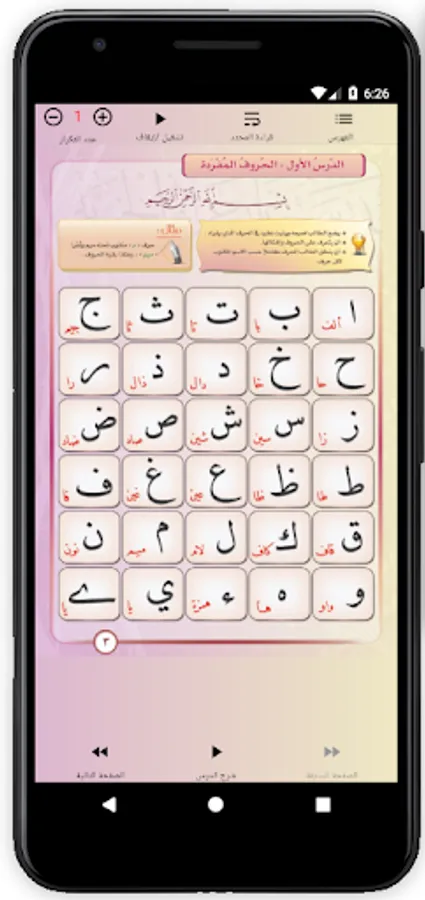 6:26
1
الفهرس قراءة المحدد تشغيل / إيقاف عدد التكرار
الدرس الأول : الحروف المفردة
بسم الله الرحمن الرحيم
ا ألف ب با ت تا ث ثا ج جيم
ح حا خ خا د دال ذ ذال ر را
ز زا س سين ش شين ص صاد ض ضاد
ط طا ظ ظا ع عين غ غين ف فا
ق قاف ك كاف ل لام م ميم ن نون
و واو ه هـا ء همزة ي يا ے يا
٣
الصفحة السابقة شرح الدرس الصفحة التالية